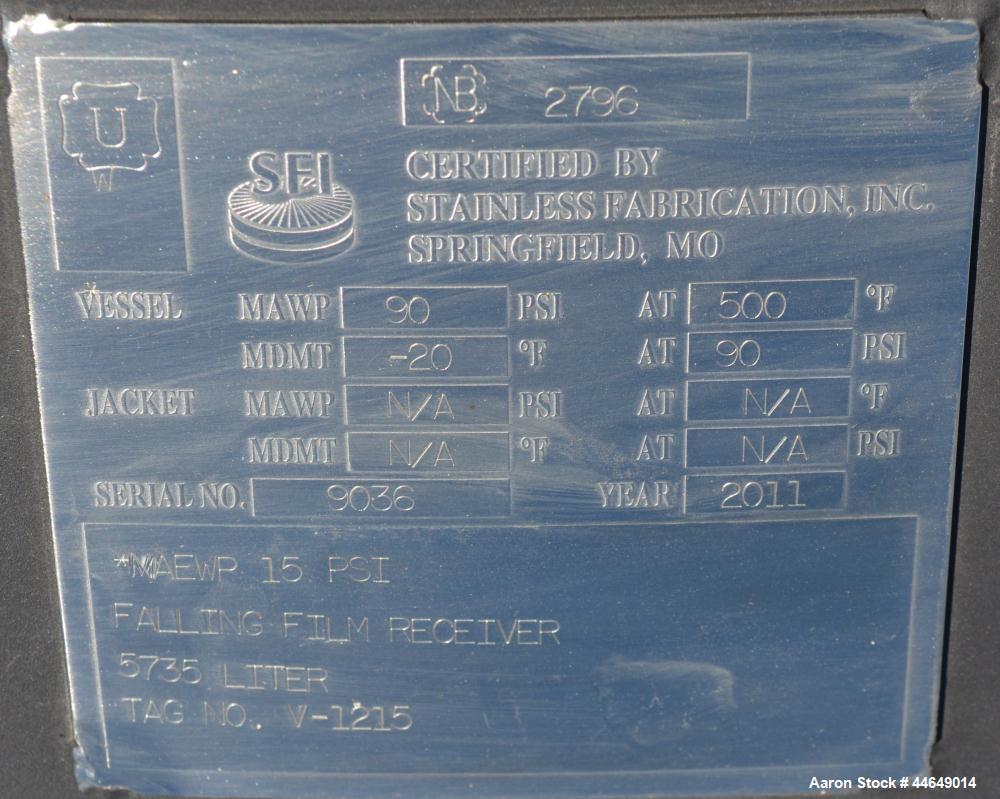 U
W
NB 2796
SFI
CERTIFIED BY
STAINLESS FABRICATION, INC.
SPRINGFIELD, MO
VESSEL MAWP 90 PSI AT 500 °F
MDMT -20 °F AT 90 PSI
JACKET MAWP N/A PSI AT N/A °F
MDMT N/A °F AT N/A PSI
SERIAL NO. 9036 YEAR 2011
*MAEWP 15 PSI
FALLING FILM RECEIVER
5735 LITER
TAG NO. V-1215
Aaron Stock # 44649014